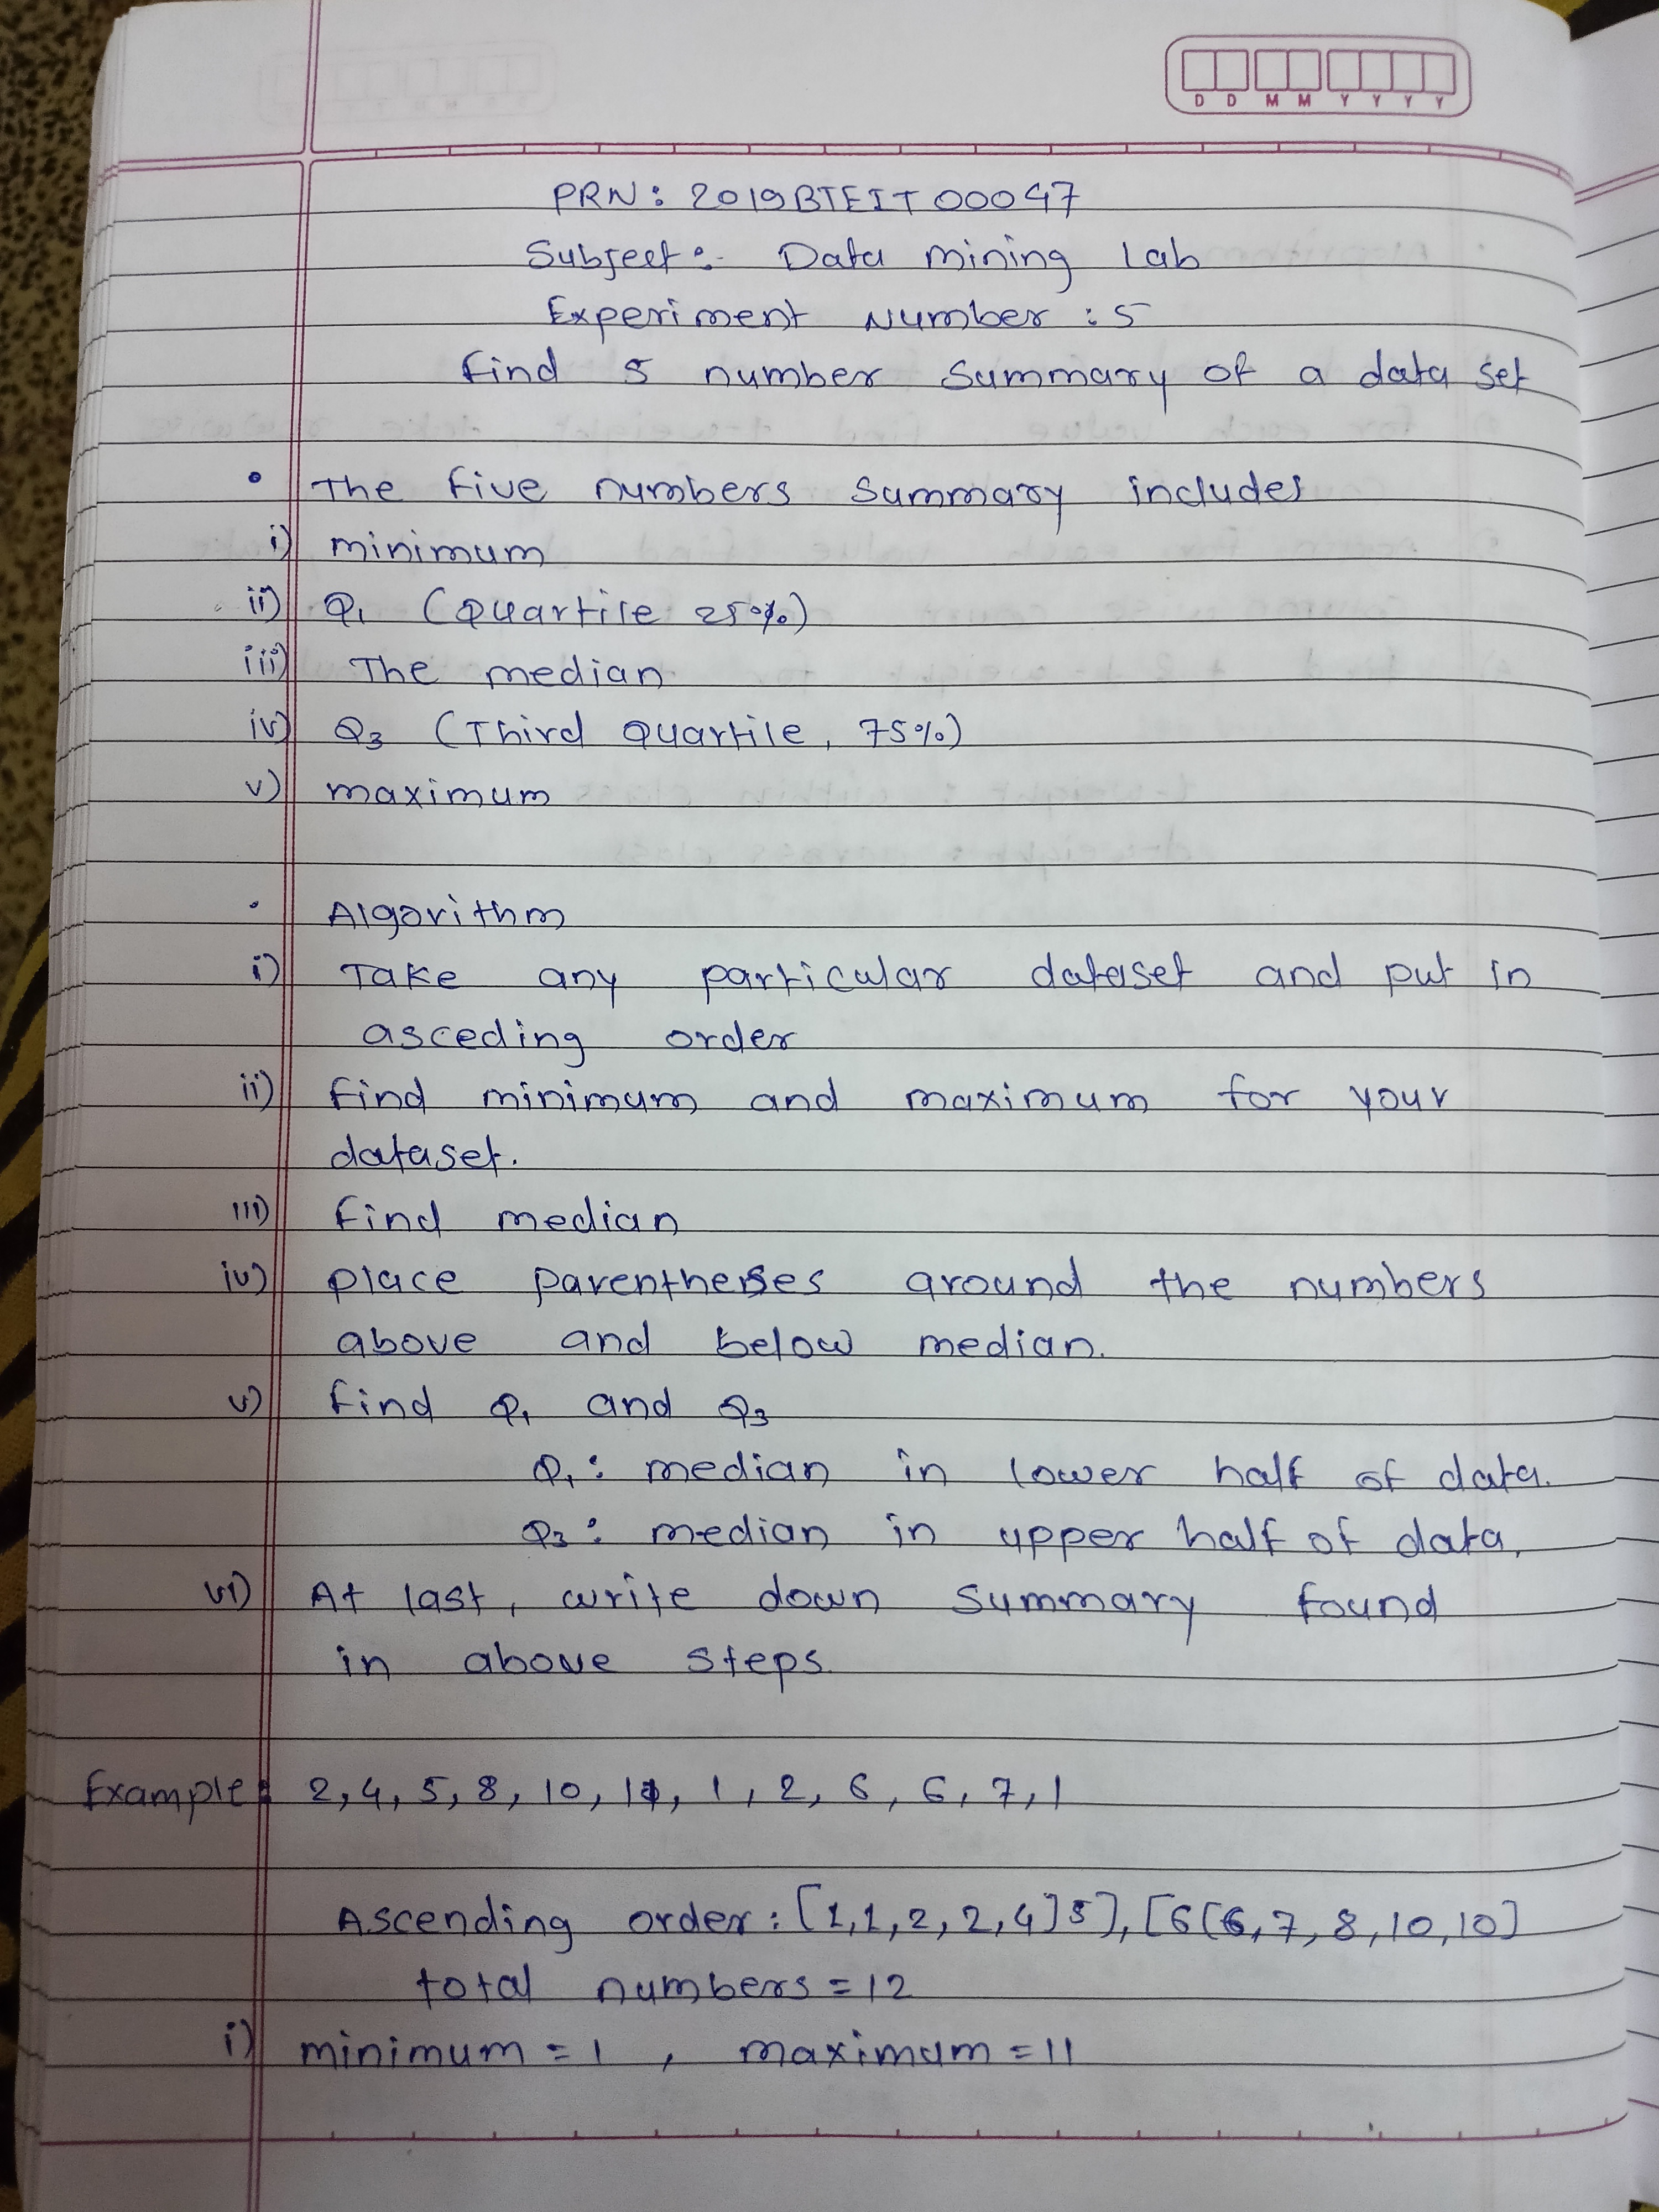 D D M M Y Y Y Y
PRN: 2019BTEIT00047
Subject:- Data mining Lab
Experiment Number : 5
Find 5 number summary of a data set
• The five numbers summary includes
i) minimum
ii) Q1 (Quartile 25%)
iii) The median
iv) Q3 (Third Quartile, 75%)
v) maximum
• Algorithm
i) Take any particular dataset and put in
asceding order
ii) Find minimum and maximum for your
dataset.
iii) Find median
iv) place parentheses around the numbers
above and below median.
v) Find Q1 and Q3
Q1: median in lower half of data.
Q3: median in upper half of data.
vi) At last, write down summary found
in above steps.
Example: 2, 4, 5, 8, 10, 11, 1, 2, 6, 6, 7, 1
Ascending order: [1,1,2,2,4]5],[6[6,7,8,10,10]
total numbers = 12
i) minimum = 1, maximum = 11